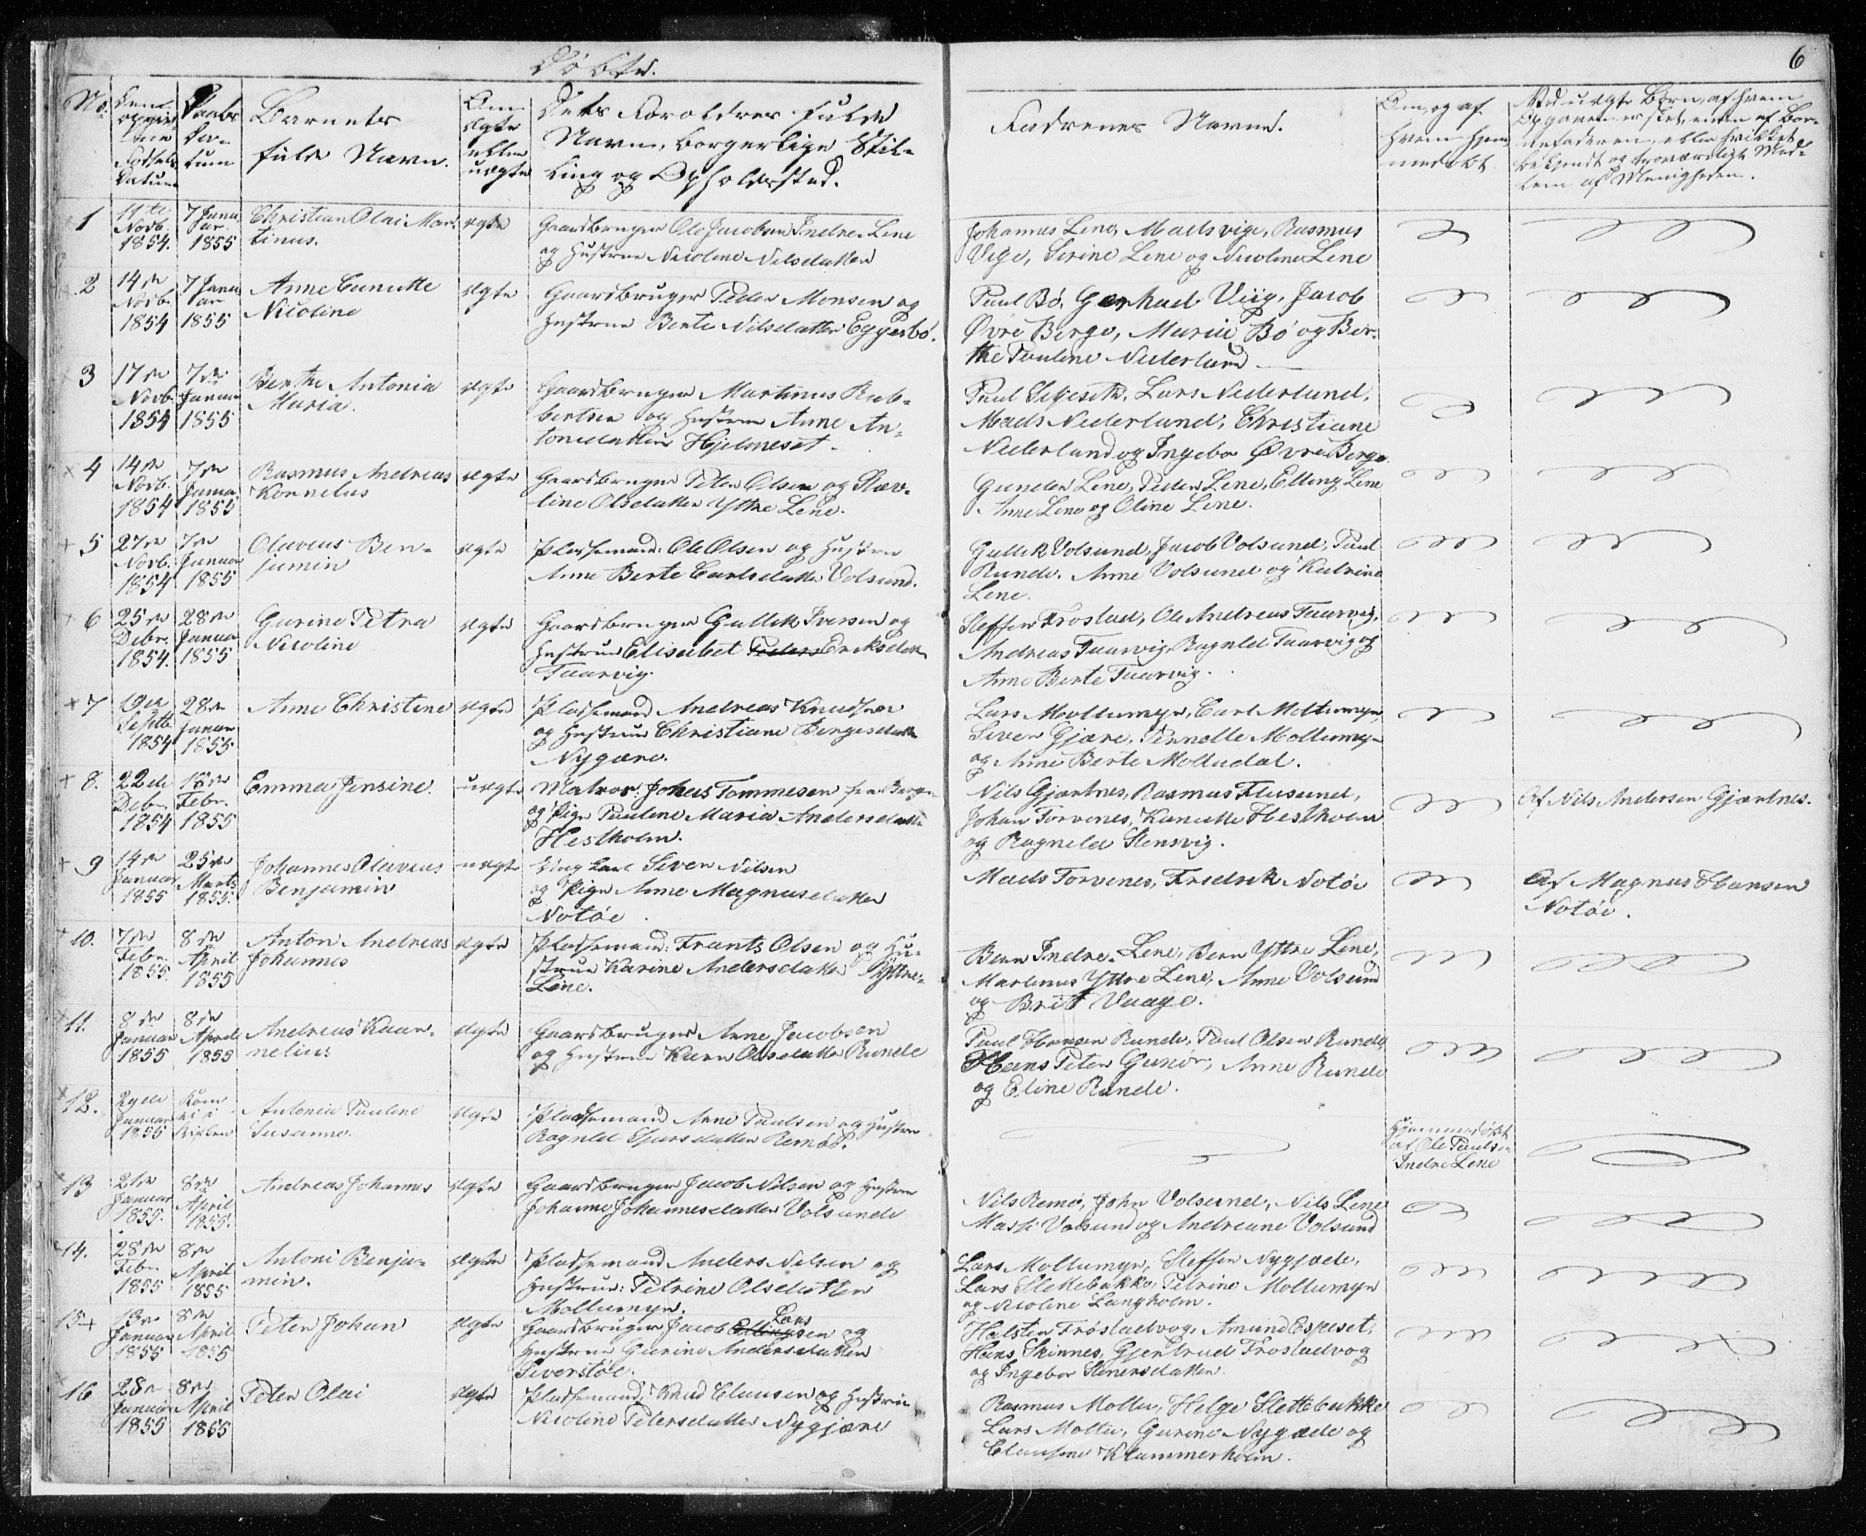 Døbte.
6
No.
Den opgivne Fødsels Datum
Daabs Datum
Barnets fulde Navn.
Om ægte eller uægte
Dets Forældres fulde Navn, borgerlige Stilling og Opholdssted.
Faddernes Navne.
Om, og af hvem hjemmedøbt
Ved uægte Børn, af hvem Opgaven er skeet, enten af Barnefaderen, eller hvilket bekjendt og troværdigt Medlem af Menigheden.
1
11te Novb. 1854.
7 Januar 1855
Christian Olai Mar-
tinus.
ægte
Gaardbruger Ole Jacobsen Indre Lene
og Hustrue Nicoline Nilsdatter
Johannes Lene, Mads vige, Rasmus
Vige, Sirine Lene og Nicoline Lene
2
14de Novb. 1854
7 Januar 1855
Anne Canutte
Nicoline
ægte
Gaardbruger Peder Monsen og
Hustrue Berte Nilsdatter Eggesbø.
Paul Bø, Gerhad Viig, Jacob
Øvre Berge, Marie Bø og Ber-
the Pauline Nederland
3
17de Novb. 1854
7de Januar 1855
Berthe Antonia
Maria.
ægte
Gaardbruger Martinus Rab-
bertsen og Hustrue Anne An-
tonsdatter Hjelmeset.
Lars Nederland,
Mads Nederland, Christiane
Nederland og Ingebor Øvre Berge
4
14de Novb. 1854
7de Januar 1855
Rasmus Andreas
Kornelus
ægte
Gaardbruger Peter Olsen og
Olsdatter Yttre Lene.
Gunder Lene, Peder Lene, Elling Lene
Anne Lene og Oline Lene.
5
27de Novb. 1854
7de Januar 1855
Olavius Ben-
jamin
ægte
Pladsemand: Ole Olsen og Hustrue
Anne Berte Carlsdatter Volsund.
Gullik Volsund, Jacob Volsund, Paul
Runde. Anne Volsund og Katrine
Lene.
6
25de Debr. 1854.
28de Januar 1855
Gurine Petra
Nicoline
ægte
Gaardbruger Gullik Iversen og
Hustrue Elisabet Eriksdatter
Taarvig.
Steffen Frostad, Ole Andreas Taarvig,
Andreas Taarvig, Ragnild Taarvig og
Anne Berte Taarvig.
7
19de Septb. 1854
28de Januar 1855
Anne Christine
ægte
Pladsemand Andreas Knudsen
og Hustrue Christiane Bergesdatter
Nygære.
Lars Moltumyr, Carl Moltumyr,
Siver Gjære, Pernelle Moltumyr
og Anne Berte Moltudal.
8.
22de Debr. 1854
18de Febr. 1855
Emma Jensine.
uægte
Matros: Johas Tommesen fra Bergen
og Pige Pauline Maria Andersdatter
Hestholm.
Nils Gjærtnes, Rasmus Flusund,
Johan Torvenes, Kanutte Hestholm
og Ragnild Stensvig.
Af Nils Andersen Gjærtnes.
9
14de Januar 1855
25de Marts 1855.
Johannes Olavius
Benjamin
uægte
Ung karl Siver Nilsen
og Pige Anne Magnusdatter
Notøe
Mads Torvenes, Fredrik Notøe
Af Magnus Hansen
Notøe.
10.
7de Febr. 1855.
8de April 1855
Anton Andreas
Johannes
ægte
Pladsemand: Frants Olsen og Hu-
strue Karine Andersdatter Yttre-
Lene.
Bern Indre Lene, Bern Yttre Lene,
Martinus Yttre Lene, Anne Volsund
og Brit Vaage.
11.
8de Januar 1855
8de April 1855
Andreas Kaar-
nelius
ægte
Gaardbruger Arne Jacobsen
og Hustrue Karn Olsdatter Runde
Paul Hansen Runde, Paul Olsen Runde,
Hans Peter Anne Runde
og Eline Runde.
12.
29de Januar 1855
Antonia Pauline
Susanna.
ægte
Pladsemand Arne Paulsen og Hustrue
Ragnild Remøe.
Hjemmedøbt
af Ole Paulsen
Indre Lene
13
21de Januar 1855.
8de April 1855.
Andreas Johannes
ægte
Gaardbruger Jacob Nilsen og Hustrue
Johanne Johannesdatter Volsunde
Nils Remø, John Volsund, Nils Lene
Marti Volsund og Andreane Volsund
14.
28de Febr. 1855
8de April 1855
Antoni Benja-
min.
ægte
Pladsemand Anders Nilsen og
Hustrue: Petrine Olsdatter
Moltumyr.
Lars Moltumyr, Steffen Nygjæde,
Lars Slettebakke, Petrine Moltumyr
og Nicoline Langholm.
15
13de Januar 1855
8de April 1855
Peter Johan
ægte
Gaardbruger Jacob Larssen og
Hustrue Gurine Andersdatter
Siverstøl.
Halsten Frøstadvog, Amund Espeset,
Hans Skinnes, Gjertrud Frostadvog
og Ingebor Stenersdatter.
16
28de Januar 1855
8de April 1855
Peter Olai
ægte
Pladsemand: Knud Clausen og Hustrue
Nicoline Petersdatter Nygjære
Rasmus Moltu, Helge Slettebakke
Lars Moltu, Gurine Nygjæde og
Clausine Klammerholm.